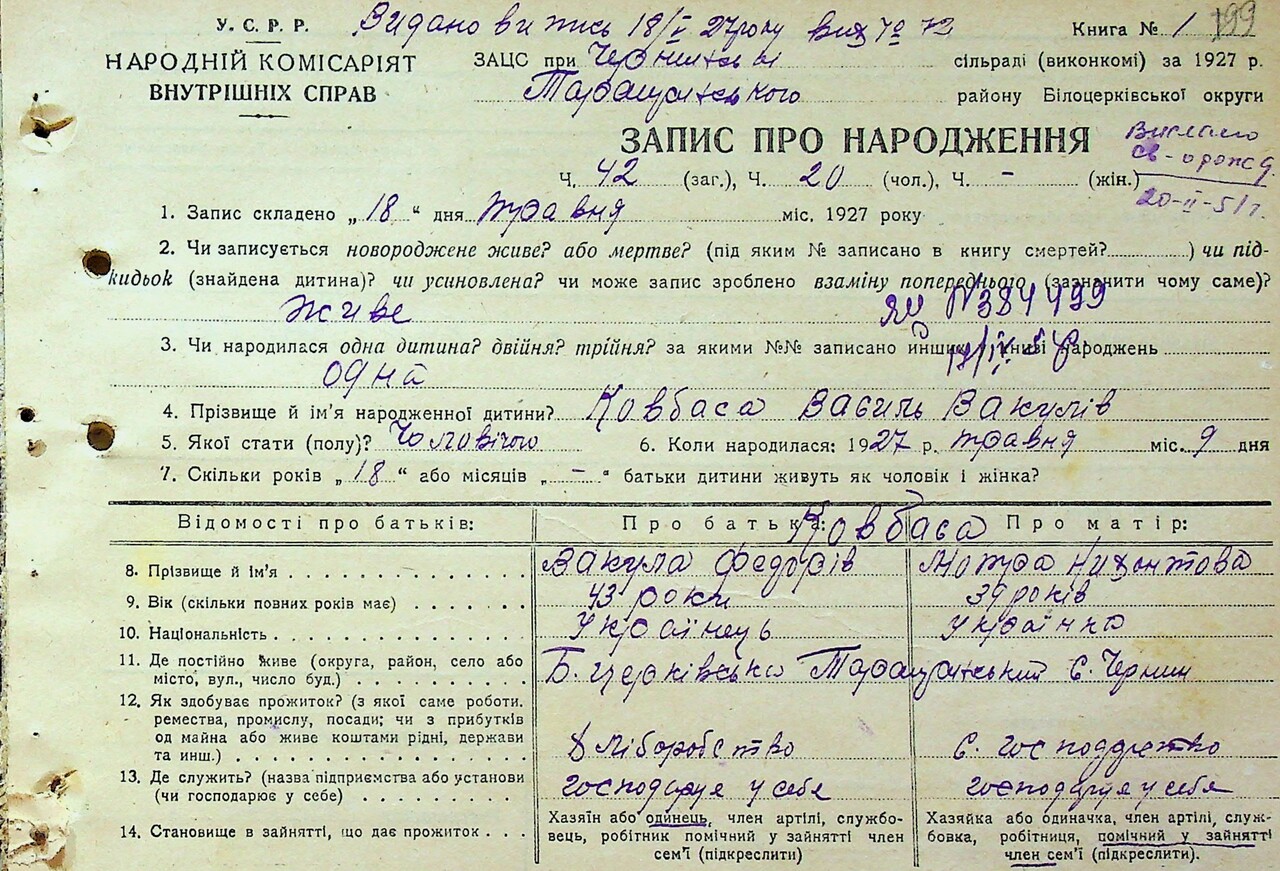 У. С. Р. Р. Видано випись 18/V 27 року вих № 72 Книга № 1 199
НАРОДНІЙ КОМІСАРІЯТ ЗАЦС при сільраді (виконкомі) за 1927 р.
ВНУТРІШНІХ СПРАВ Таращанського району Білоцерківської округи
ЗАПИС ПРО НАРОДЖЕННЯ
Вислано
св-о рожд
20-II-51 г.
Ч. 42 (заг.), Ч. 20 (чол.), Ч. - (жін.)
1. Запис складено „18“ дня травня міс. 1927 року
2. Чи записується новороджене живе? або мертве? (під яким № записано в книгу смертей?..........) чи під-
кидьок (знайдена дитина)? чи усиновлена? чи може запис зроблено взаміну попереднього (зазначити чому саме)?
живе № 384499
3. Чи народилася одна дитина? двійня? трійня? за якими №№ записано инших у книзі народжень
одна
4. Прізвище й ім'я народженної дитини? Ковбаса Василь Вакулів
5. Якої стати (полу)? Чоловічого 6. Коли народилася: 1927 р. травня міс. 9 дня
7. Скільки років „18“ або місяців „-“ батьки дитини живуть як чоловік і жінка?
Відомості про батьків: Про батька: Ковбаса Про матір:
8. Прізвище й ім'я Вакула Федорів Мотря
9. Вік (скільки повних років має) 43 роки 39 років
10. Національність Українець Українка
11. Де постійно живе (округа, район, село або
місто, вул., число буд.) Б. церківська Таращанський с. Чернин
12. Як здобуває прожиток? (з якої саме роботи.
ремества, промислу, посади; чи з прибутків
од майна або живе коштами рідні, держави
та инш.) Хліборобство С. господарство
13. Де служить? (назва підприємства або установи
(чи господарює у себе) господарує у себе господарує у себе
14. Становище в зайнятті, що дає прожиток
Хазяїн або одинець, член артілі, службо-
вець, робітник помічний у зайнятті член
сем'ї (підкреслити)
Хазяйка або одиначка, член артілі, служ-
бовка, робітниця, помічний у зайнятті
член сем'ї (підкреслити).